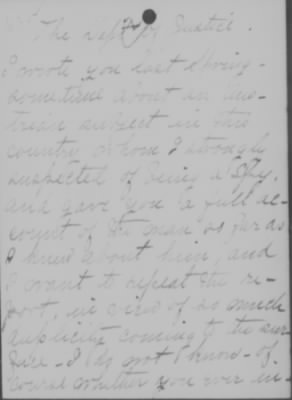 The Dept of Justice.
I wrote you last Spring -
sometime about an Aus-
trian subject in this
country whom I strongly
suspected of being a Spy,
and gave you a full ac-
count of the man as far as
I knew about him, and
I want to repeat the re-
port, in view of so much
publicity coming to the sur-
face - I do not know - of
course whether you ever in-